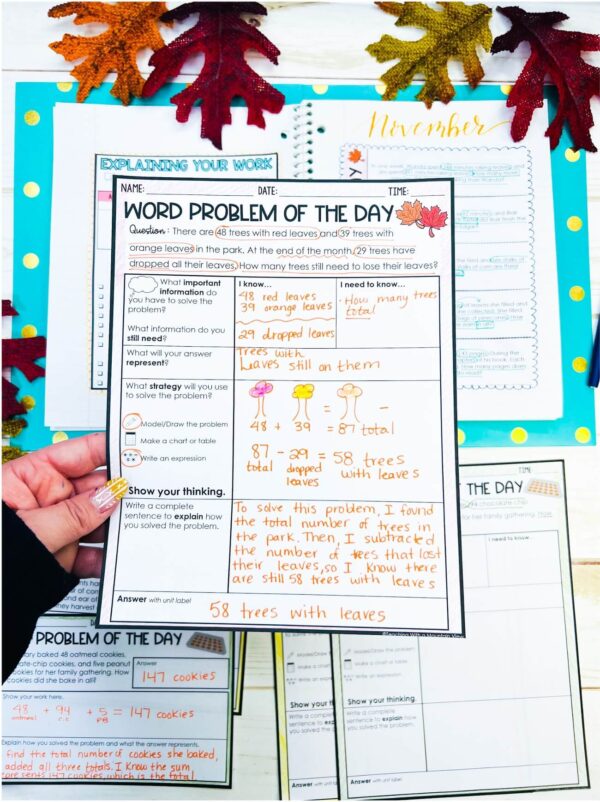 November
EXPLAINING YOUR WORK
NAME: DATE: TIME:
WORD PROBLEM OF THE DAY
Question: There are 48 trees with red leaves and 39 trees with
orange leaves in the park. At the end of the month, 29 trees have
dropped all their leaves. How many trees still need to lose their leaves?
What important
information do
you have to solve the
problem?
What information do you
still need?
I know...
48 red leaves
39 orange leaves
29 dropped leaves
I need to know...
· How many trees
total
What will your answer
represent?
Trees with
Leaves still on them
What strategy will you use
to solve the problem?
Model/Draw the problem
Make a chart or table
Write an expression
= -
48 + 39 = 87 total
87 - 29 = 58 trees
total dropped with leaves
leaves
Show your thinking.
Write a complete
sentence to explain how
you solved the problem.
To solve this problem, I found
the total number of trees in
the park. Then, I subtracted
the number of trees that lost
their leaves, so I know there
are still 58 trees with leaves
Answer with unit label
58 trees with leaves
PROBLEM OF THE DAY
baked 48 oatmeal cookies,
-chip cookies, and five peanut
cookies for her family gathering. How
cookies did she bake in all?
Answer
147 cookies
Show your work here.
48 + 94 + 5 = 147 cookies
oatmeal c.c. PB
Explain how you solved the problem and what the answer represents.
find the total number of cookies she baked,
added all three totals. I know the sum
represents 147 cookies, which is the total
TIME:
THE DAY
chocolate chip
for her family gathering.
I need to know...
Model/Draw the problem
Make a chart or table
Write an expression
Show your thinking.
Write a complete
sentence to explain how
you solved the problem.
Answer with unit label